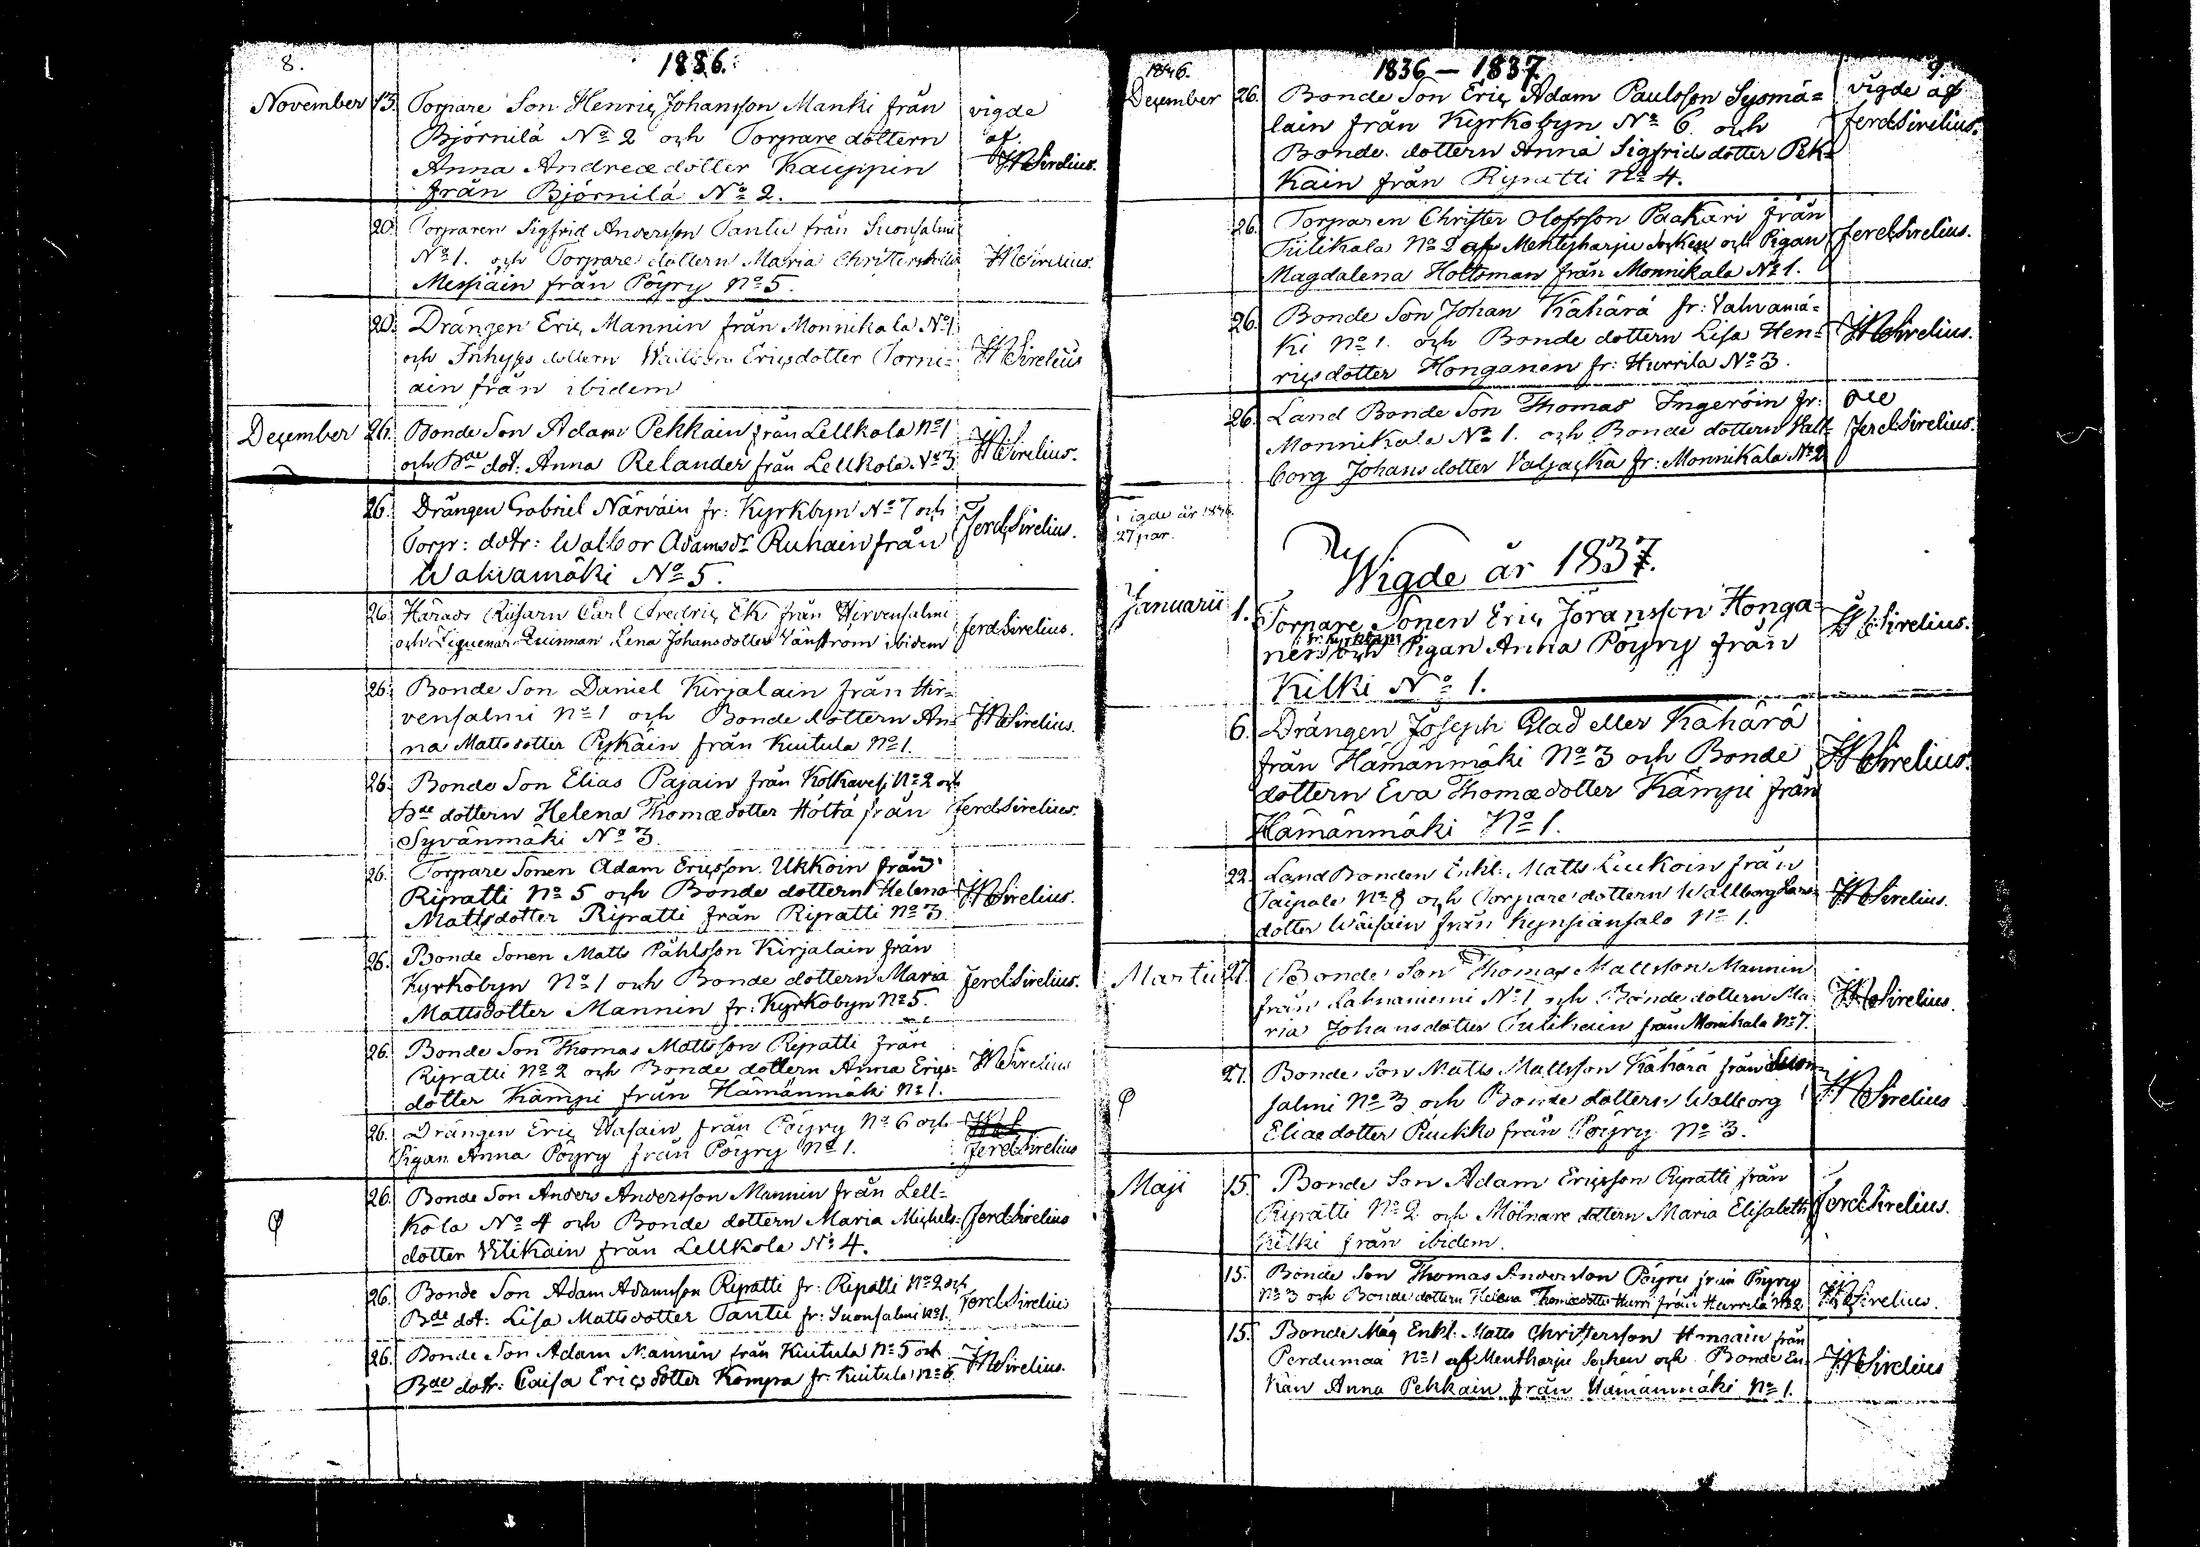 8.
1836.
November 13. Torpare Son Henric Johansson Manki från
Björnilä No 2 och Torpare dottern
Anna Andreædotter Kauppin
från Björnilä No 2.
vigde
af
Sirelius.
20. Torparen Sigfrid Andersson Tantu från Suonsalmi
No 1. och Torpare dottern Maria Christersdotter
från Pöyry No 5.
Sirelius.
20. Drängen Eric Mannin från Monnikala No 1
och Inhyses dottern Ericsdotter Torni=
ain från ibidem
Sirelius
December 26. Bonde Son Adam Pekkain från Lellkola No 1
och Bde dot: Anna Relander från Lellkola No 3
Sirelius.
26. Drängen Gabriel Närväin fr: Kyrkbyn No 7 och
Torp: dotr: Walbor Adamsdr Ruhain från
Wahvamäki No 5.
Ferd Sirelius.
26. Härads Carl Fredric Ek från Hirvensalmi
och Qvinnan Lena Johansdotter Vänström ibidem
Ferd Sirelius.
26. Bonde Son Daniel Kirjalain från Hir=
vensalmi No 1 och Bonde dottern An=
na Mattsdotter Pykäin från Kuitula No 1.
Sirelius.
26. Bonde Son Elias Pajain från Kolkavesi No 2 och
Bde dottern Helena Thomædotter Holta från
Syvänmäki No 3.
Ferd Sirelius.
26. Torpare Sonen Adam Ericsson Ukkoin från
Ripatti No 5 och Bonde dottern Helena
Mattsdotter Ripatti från Ripatti No 3.
Sirelius.
26. Bonde Sonen Matts Påhlsson Kirjalain från
Kyrkobyn No 1 och Bonde dottern Maria
Mattsdotter Mannin fr: Kyrkobyn No 5.
Ferd Sirelius.
26. Bonde Son Thomas Mattsson Ripatti från
Ripatti No 2 och Bonde dottern Anna Erics=
dotter Kämpi från Hämänmäki No 1.
Sirelius
26. Drängen Eric Wasain från Pöyry No 6 och
Pigan Anna Pöyry från Pöyry No 1.
Ferd Sirelius
26. Bonde Son Anders Andersson Mannin från Lell=
kola No 4 och Bonde dottern Maria Michels=
dotter Vilikain från Lellkola No 4.
Ferd Sirelius
26. Bonde Son Adam Adamsson Ripatti fr: Ripatti No 2 och
Bde dot: Lisa Mattsdotter Tantu fr: Suonsalmi No 1.
Ferd Sirelius
26. Bonde Son Adam Mannin från Kuitula No 5 och
Bde dotr: Caisa Ericsdotter Kompa fr: Kuitula No 6
Sirelius.
1836.
1836 — 1837.
9.
December 26. Bonde Son Eric Adam Paulsson Sysmä=
läin från Kyrkobyn No 6. och
Bonde dottern Anna Sigfrids dotter Pek=
kain från Ripatti No 4.
vigde af
Ferd Sirelius.
26. Torparen Christer Olofsson Paakari från
Tiilikala No 2 af Mentyharju Socken och Pigan
Magdalena Holtsman från Monnikala No 1.
Ferd Sirelius.
26. Bonde Son Johan Kähärä fr: Vahvamä=
ki No 1. och Bonde dottern Lisa Hen=
ricsdotter Honganen fr: Hurrila No 3.
Sirelius.
26. Land Bonde Son Thomas Ingeröin fr:
Monnikala No 1. och Bonde dottern Vall=
borg Johansdotter Valjacka fr: Monnikala No 2
Ferd Sirelius.
Vigde år 1836.
27 par.
Wigde år 1837.
Januarii 1. Torpare Sonen Eric Jöransson Honga=
nen fr: Kyrkbyn och Pigan Anna Pöyry från
Kilki No 1.
Sirelius.
6. Drängen Joseph Glad eller Kähärä
från Hämänmäki No 3 och Bonde
dottern Eva Thomædotter Kämpi från
Hämänmäki No 1.
Sirelius.
22. Land Bonden Enkl: Matts Liukoin från
Taipale No 8 och Torpare dottern Wallborg Lars=
dotter Wäisäin från Kynsiänsalo No 1.
Sirelius.
Martii 27. Bonde Son Thomas Mattsson Mannin
från Lahnaniemi No 1 och Bonde dottern Ma=
ria Johansdotter Tulikain från Monikala No 7.
Sirelius.
27. Bonde Son Matts Mattsson Kähärä från Suon=
salmi No 3 och Bonde dottern Wallborg
Eliædotter Puukko från Pöyry No 3.
Sirelius
Maji 15. Bonde Son Adam Ericsson Ripatti från
Ripatti No 2 och Mölnare dottern Maria Elisabeth
Kilki från ibidem.
Ferd Sirelius.
15. Bonde Son Thomas Andersson Pöyry från Pöyry
No 3 och Bonde dottern Helena Thomædotter Hurri från Hurrila No 2
Sirelius.
15. Bonde Måg Enkl: Matts Christersson från
Perdumaa No 1 af Mentharju Socken och Bonde En=
kan Anna Pekkain från Hämänmäki No 1.
Sirelius